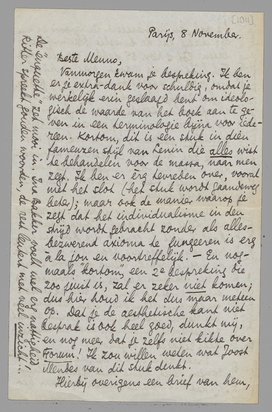 [1934]
Parijs, 8 November.
Beste Menno,
Vanmorgen kwam je bespreking. Ik ben
er je extra-dank voor schuldig, omdat je
werkelijk erin geslaagd bent om ideolo-
gisch de waarde van het boek aan te ge-
ven in een terminologie bijna voor ieder-
een. Kortom, dit is een stuk in dien
fameuzen stijl van Lenin die alles wist
te behandelen voor de massa, naar men
zegt. Ik ben er erg tevreden over, vooral
met het slot (het stuk wordt gaandeweg
beter); maar ook de manier waarop je
zegt dat het individualisme in den
strijd wordt gebracht zonder als alles-
bezwerend axioma te fungeeren is erg
à la jou en voortreffelijk. – En nog-
maals kortom, een 2e bespreking die
zoo juist is, zal er zeker niet komen;
dus hier houd ik het dus maar meteen
op. Dat je de aesthetische kant niet
besprak is ook heel goed, dunkt mij,
en nog meer dat je zelfs niet kikte over
Forum! Ik zou willen weten wat Joost
van dit stuk denkt.
Hierbij overigens een brief van hem,
De "enquête" zet mooi in. Ina Bakker voelt wel erg nattigheid